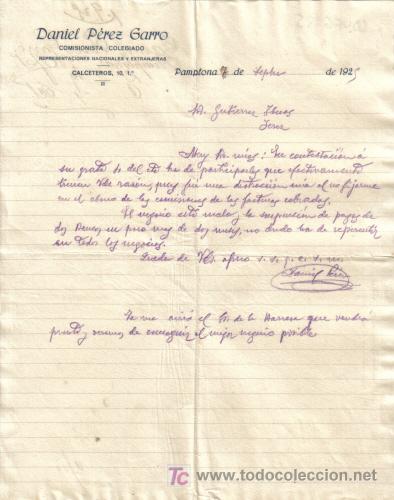 Daniel Pérez Garro
COMISIONISTA COLEGIADO
REPRESENTACIONES NACIONALES Y EXTRANJERAS
CALCETEROS, 10, 1.º
Pamplona 7 de Septbre de 1925
Sr. Gutierrez Hnos
Jerez
Muy Sr. mios: En contestación á
su grata 4 del cte he de participarles que efectivamente
tienen Vdes razon, pues fue una distracción mia el no fijarme
en el abono de las comisiones de las facturas cobradas.
El negocio está malo y la suspension de pagos de
dos Bancos en poco mas de dos meses, no duda ha de repercutir
en todos los negocios.
Queda de Vds afmo s. s. q. e. s. m.
Daniel Pérez
Ya me avisó el Sr. de la Barrera que vendrá
pronto y veremos de conseguir el mejor negocio posible
TC www.todocoleccion.net